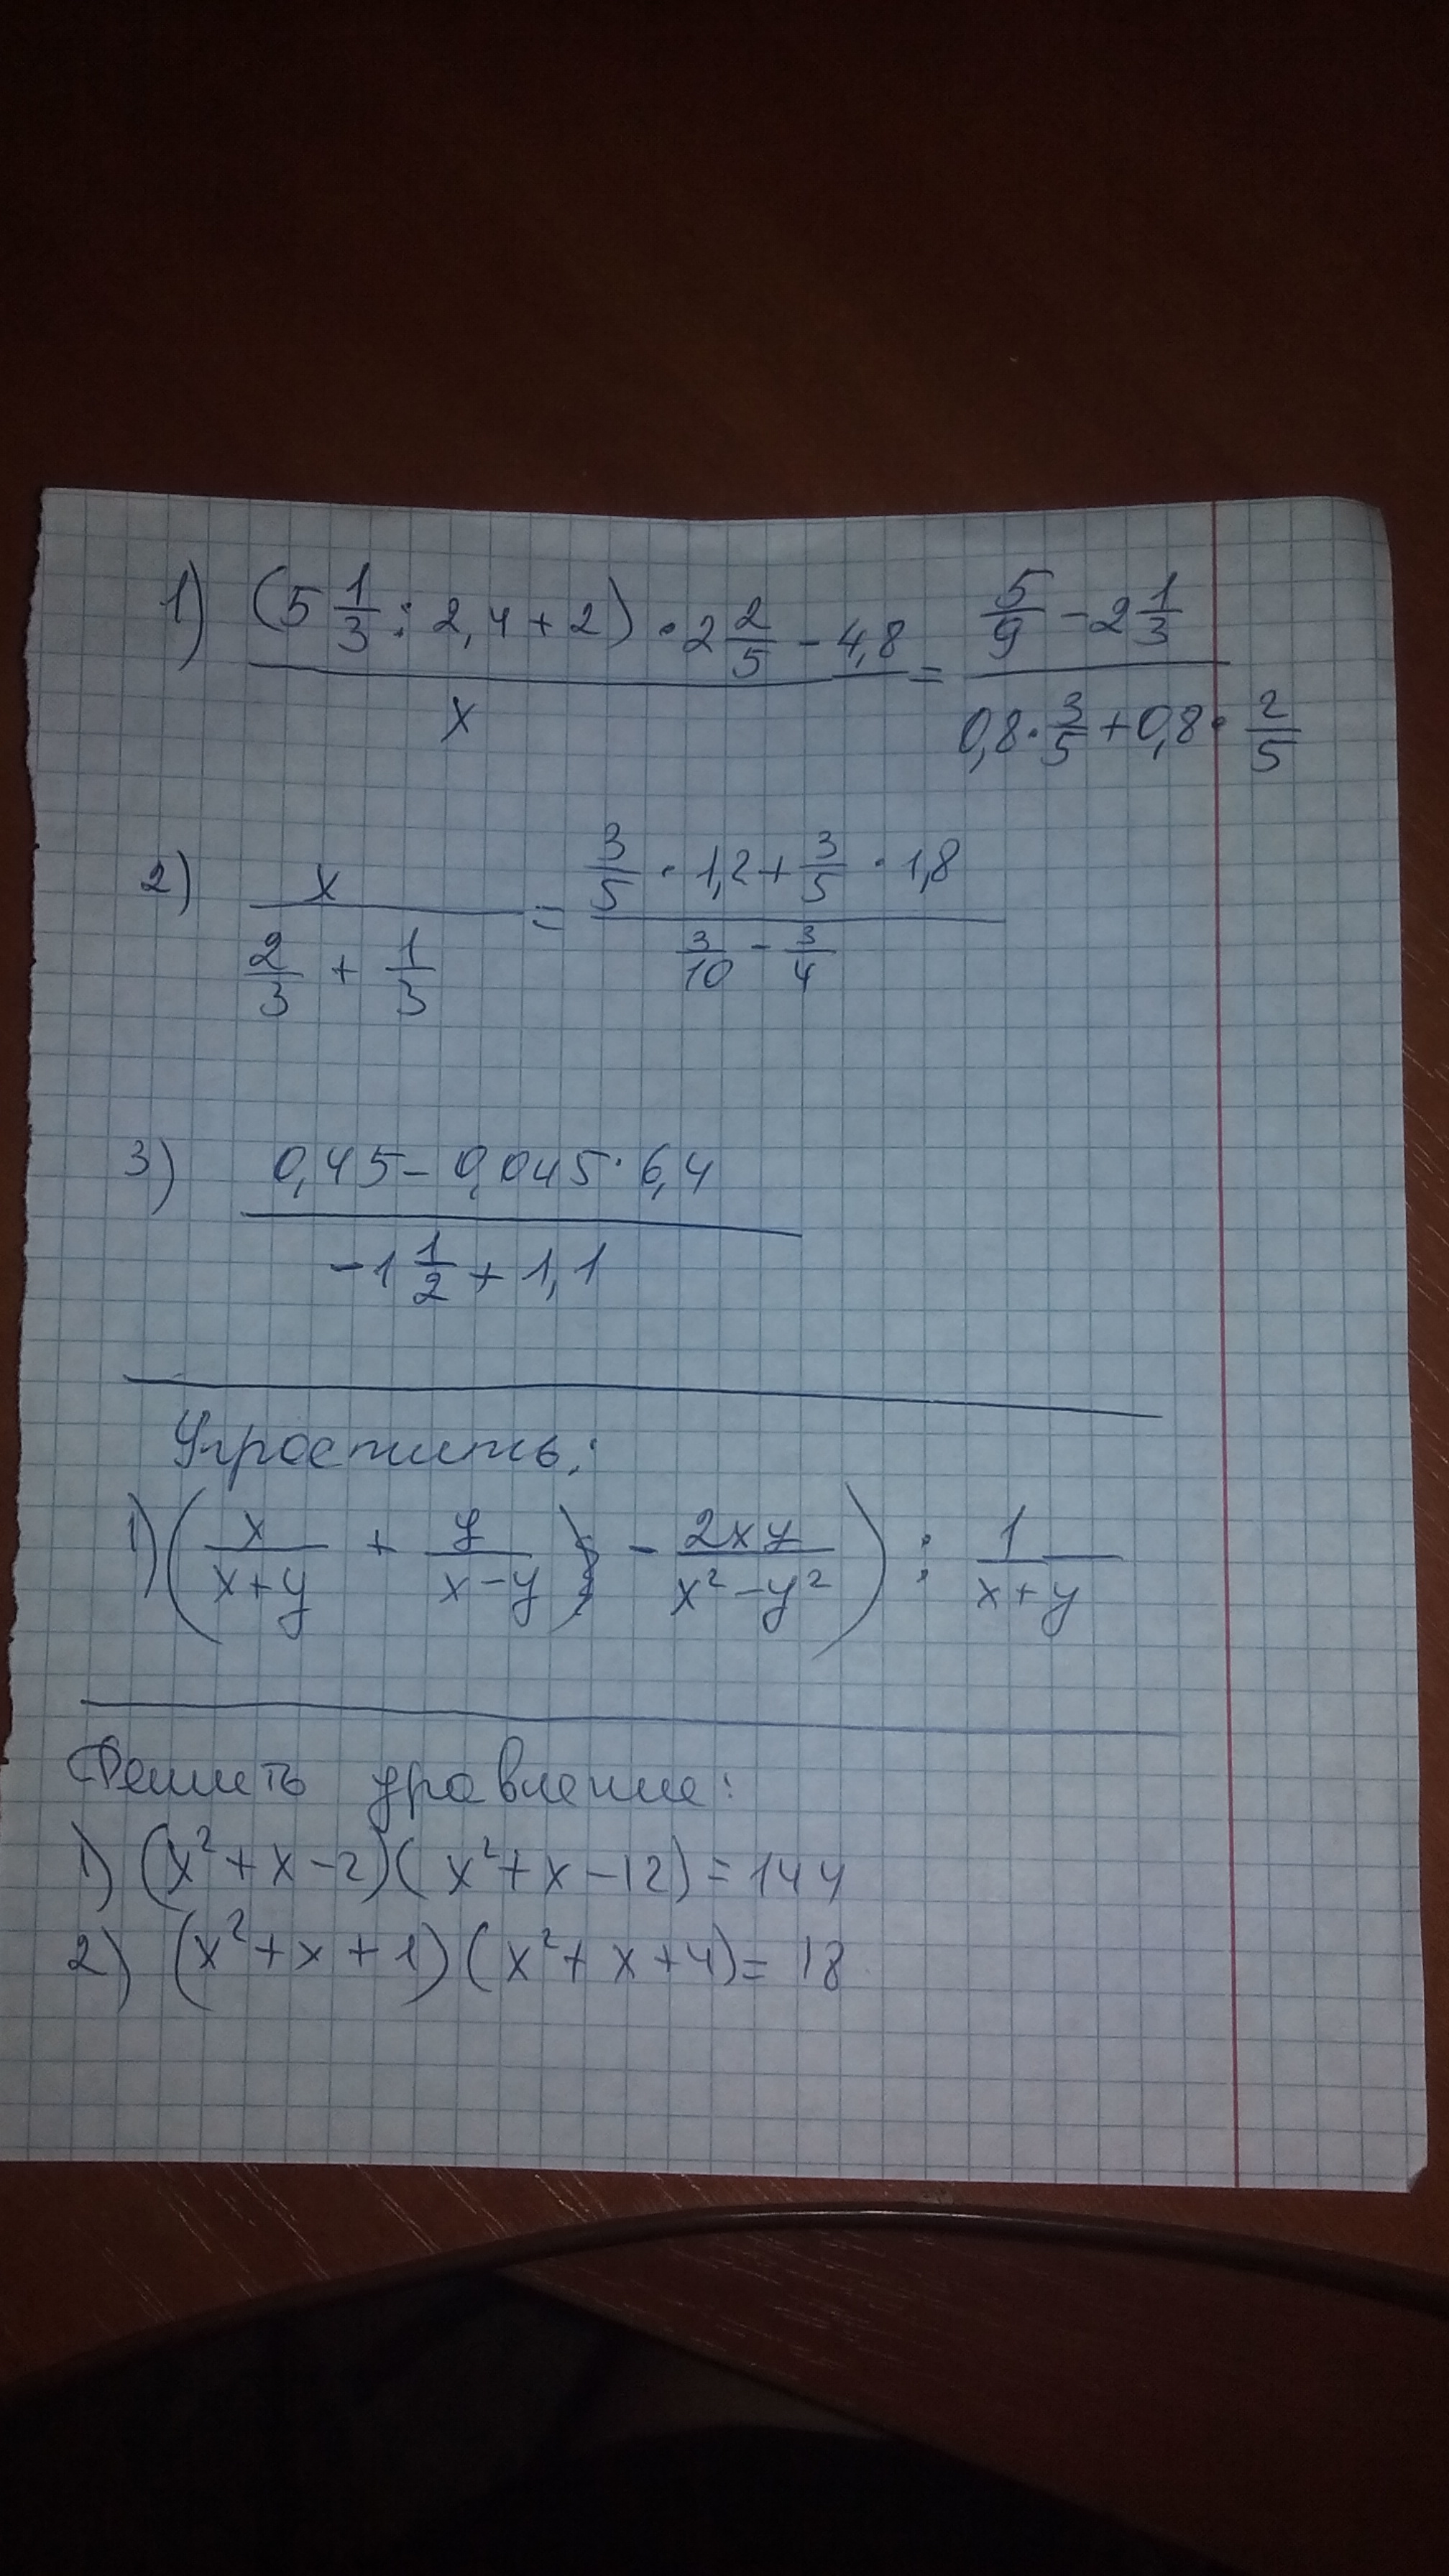 1) ((5 1/3 : 2,4 + 2) · 2 2/5 - 4,8)/x = (5/9 - 2 1/3)/(0,8 · 3/5 + 0,8 · 2/5)
2) x/(2/3 + 1/3) = (3/5 · 1,2 + 3/5 · 1,8)/(3/10 - 3/4)
3) (0,45 - 0,045 · 6,4)/(-1 1/2 + 1,1)
Упростить:
1) (x/(x+y) + y/(x-y) - 2xy/(x² - y²)) : 1/(x+y)
Решить уравнение:
1) (x² + x - 2)(x² + x - 12) = 144
2) (x² + x + 1)(x² + x + 4) = 18